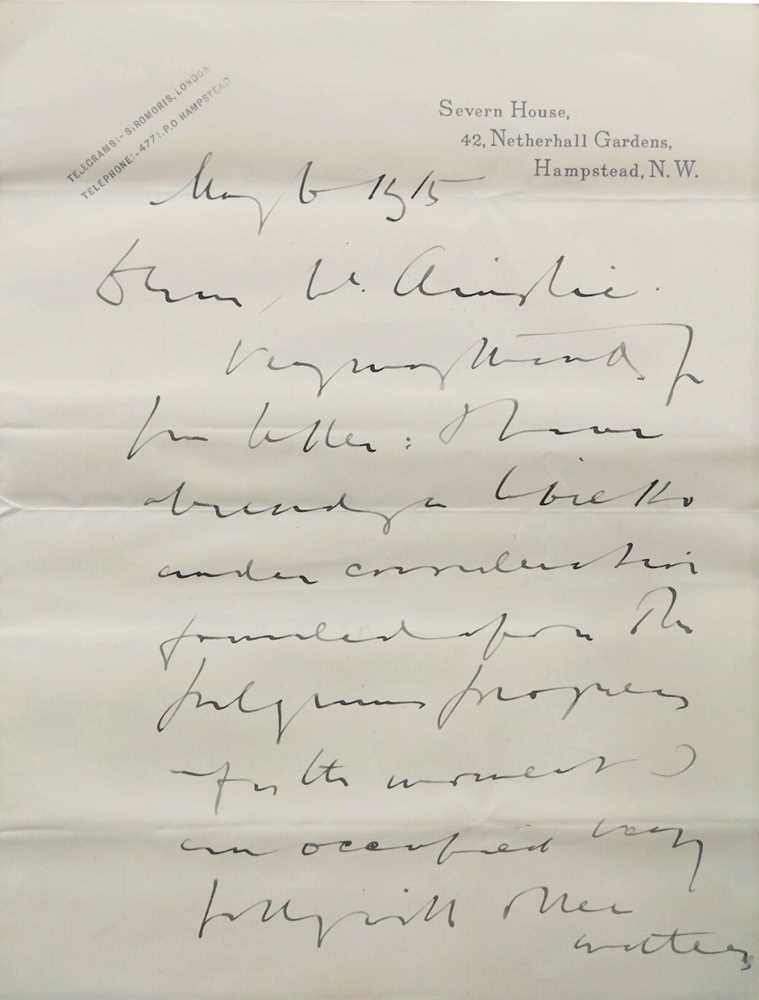 TELEGRAMS:- S. ROMORIS, LONDON
TELEPHONE:- 4771. P.O HAMPSTEAD
Severn House,
42, Netherhall Gardens,
Hampstead, N. W.
May 6 1915
Dear Mr. Ainslie.
Very many thanks for
your letter: I have
already a libretto
under consideration
founded upon The
pilgrims progress
– for the moment I
am occupied very
fully with other
matters